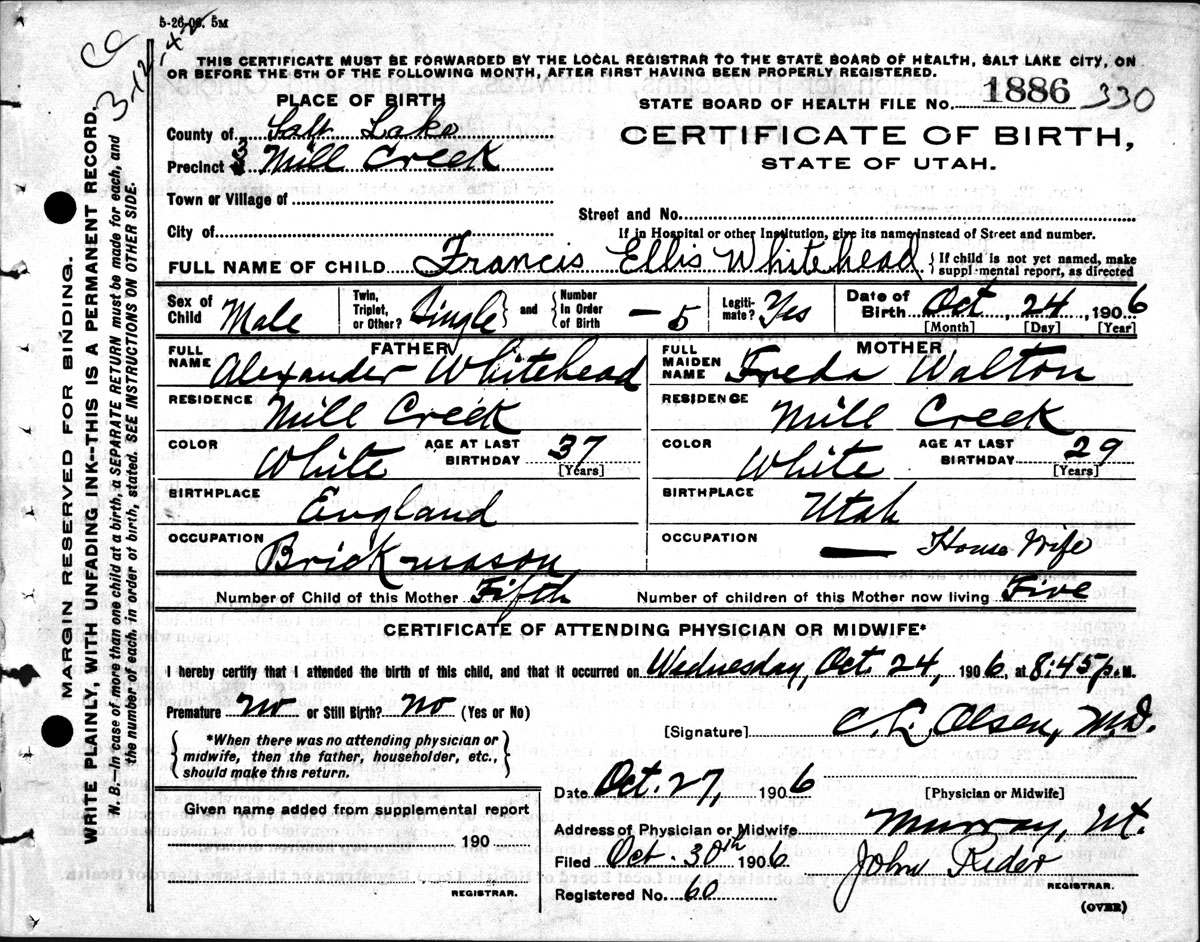 5-26-06. 5M
3-12-42
THIS CERTIFICATE MUST BE FORWARDED BY THE LOCAL REGISTRAR TO THE STATE BOARD OF HEALTH, SALT LAKE CITY, ON
OR BEFORE THE 5TH OF THE FOLLOWING MONTH, AFTER FIRST HAVING BEEN PROPERLY REGISTERED.
PLACE OF BIRTH
STATE BOARD OF HEALTH FILE No. 1886 330
County of Salt Lake
CERTIFICATE OF BIRTH,
Precinct 3 Mill Creek
STATE OF UTAH.
Town or Village of
Street and No.
City of
If in Hospital or other Institution, give its name instead of Street and number.
FULL NAME OF CHILD Francis Ellis Whitehead { If child is not yet named, make
supplemental report, as directed
Sex of Child Male
Twin, Triplet, or Other? Single } and { Number In Order of Birth — 5
Legitimate? Yes
Date of Birth Oct 24, 1906
[Month] [Day] [Year]
FATHER
FULL NAME Alexander Whitehead
RESIDENCE Mill Creek
COLOR White AGE AT LAST BIRTHDAY 37
[Years]
BIRTHPLACE England
OCCUPATION Brick mason
MOTHER
FULL MAIDEN NAME Freda Walton
RESIDENCE Mill Creek
COLOR White AGE AT LAST BIRTHDAY 29
[Years]
BIRTHPLACE Utah
OCCUPATION House Wife
Number of Child of this Mother Fifth Number of children of this Mother now living Five
CERTIFICATE OF ATTENDING PHYSICIAN OR MIDWIFE*
I hereby certify that I attended the birth of this child, and that it occurred on Wednesday, Oct. 24, 1906, at 8:45 p.M.
Premature No or Still Birth? No (Yes or No)
[Signature] C. L. Olsen, M.D.
{ *When there was no attending physician or
midwife, then the father, householder, etc.,
should make this return. }
Date Oct. 27, 1906
[Physician or Midwife]
Given name added from supplemental report
190
REGISTRAR.
Address of Physician or Midwife Murray, Ut.
Filed Oct. 30th 1906 John Rider
REGISTRAR.
Registered No. 60
(OVER)
MARGIN RESERVED FOR BINDING.
WRITE PLAINLY, WITH UNFADING INK--THIS IS A PERMANENT RECORD.
N. B.—In case of more than one child at a birth, a SEPARATE RETURN must be made for each, and
the number of each, in order of birth, stated. SEE INSTRUCTIONS ON OTHER SIDE.